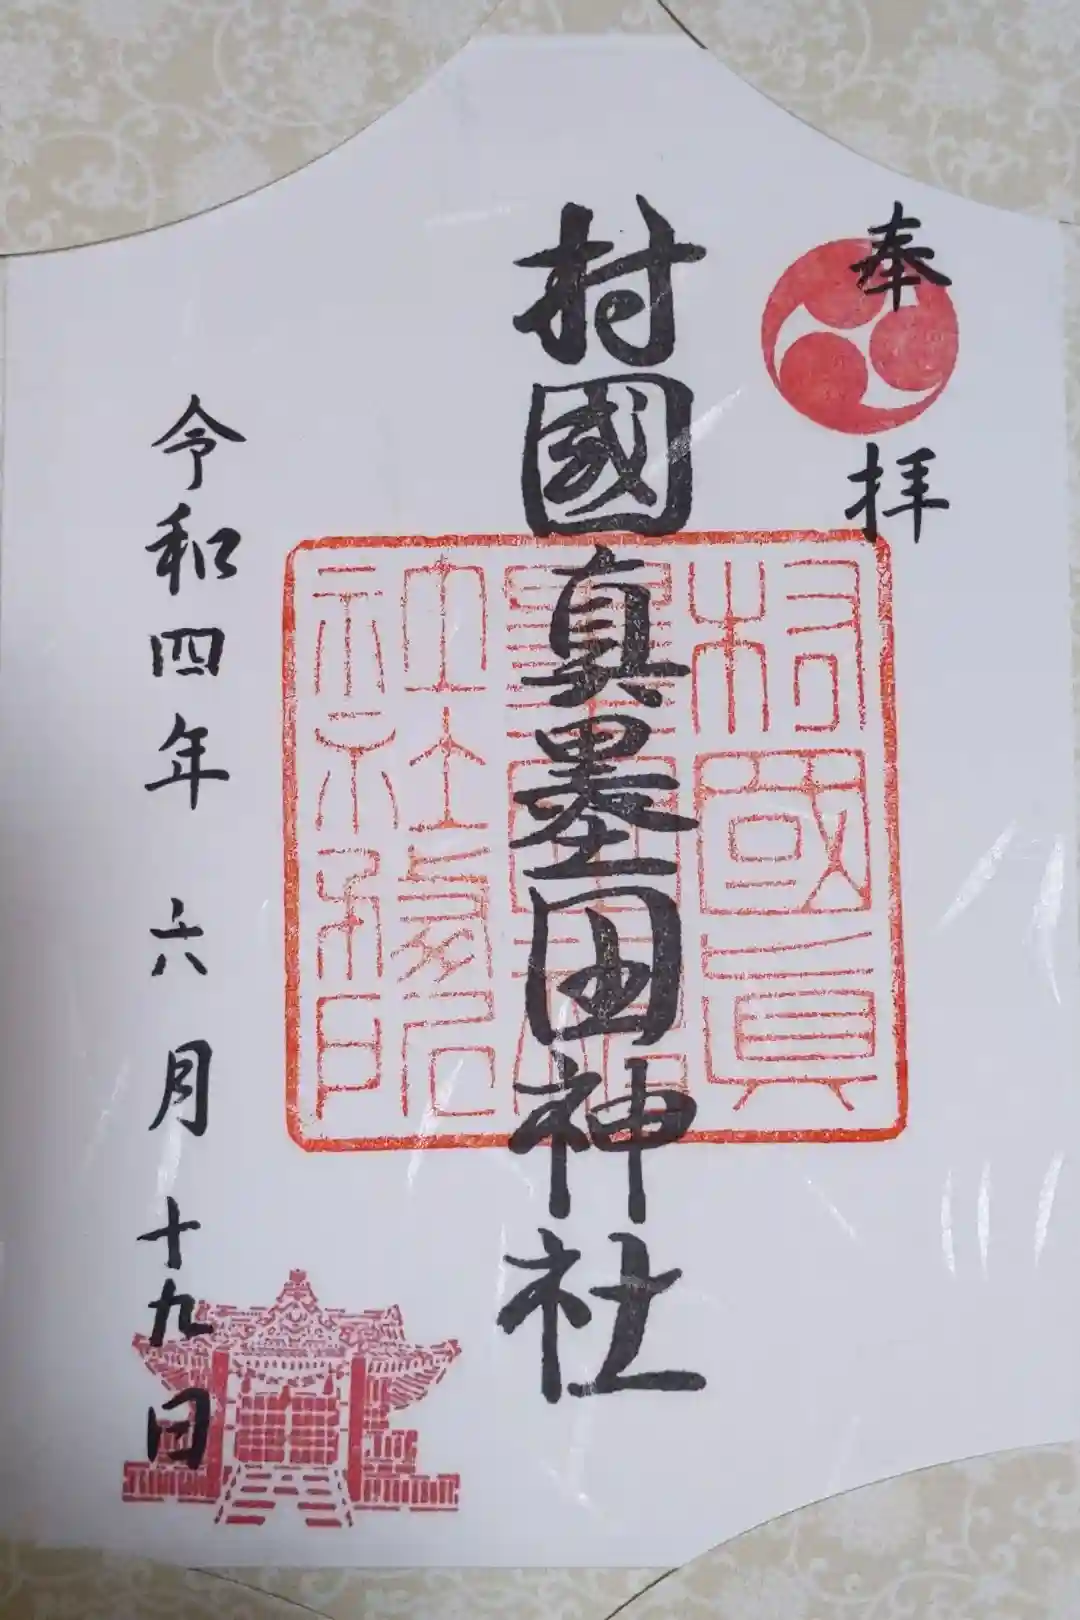 奉拝
村國真墨田神社
村國眞
墨田神
社社務所
令和四年六月十九日